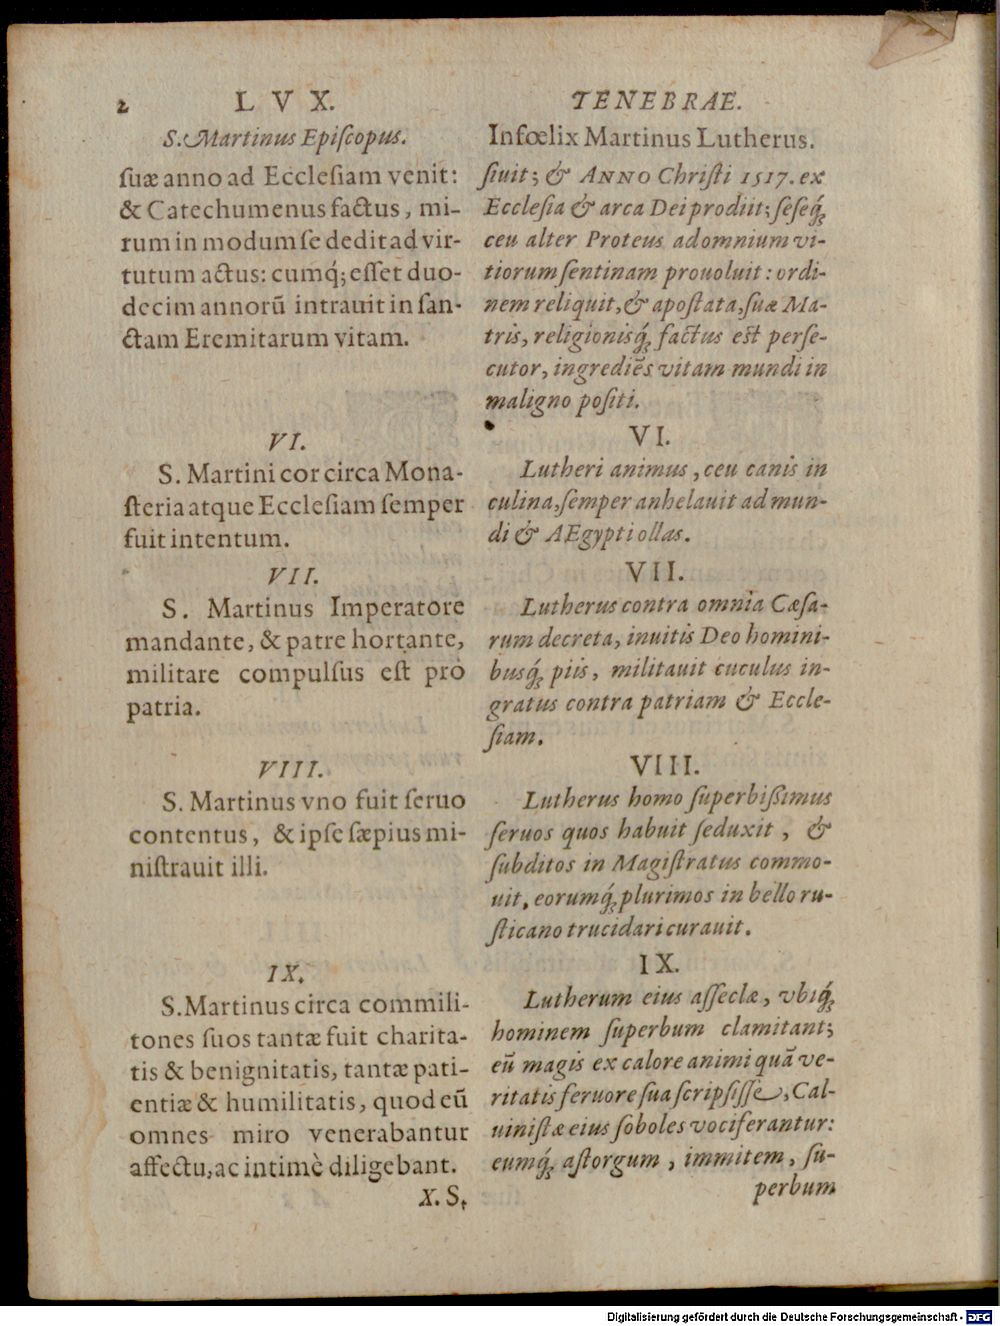 2 L V X.
S. Martinus Epiſcopus.
ſuæ anno ad Eccleſiam venit:
& Catechumenus factus, mi-
rum in modum ſe dedit ad vir-
tutum actus: cumq́; eſſet duo-
decim annorū intrauit in ſan-
ctam Eremitarum vitam.
VI.
S. Martini cor circa Mona-
ſteria atque Eccleſiam ſemper
fuit intentum.
VII.
S. Martinus Imperatore
mandante, & patre hortante,
militare compulſus eſt pro
patria.
VIII.
S. Martinus vno fuit ſeruo
contentus, & ipſe ſæpius mi-
niſtrauit illi.
IX.
S. Martinus circa commili-
tones ſuos tantæ fuit charita-
tis & benignitatis, tantæ pati-
entiæ & humilitatis, quod eū
omnes miro venerabantur
affectu, ac intimè diligebant.
X. S.
TENEBRAE.
Infœlix Martinus Lutherus.
ſiuit; & ANNO Chriſti 1517. ex
Eccleſia & arca Dei prodiit; ſeſeq́;
ceu alter Proteus ad omnium vi-
tiorum ſentinam prouoluit: ordi-
nem reliquit, & apoſtata, ſuæ Ma-
tris, religionisq́; factus eſt perſe-
cutor, ingrediēs vitam mundi in
maligno poſiti.
VI.
Lutheri animus, ceu canis in
culina, ſemper anhelauit ad mun-
di & AEgypti ollas.
VII.
Lutherus contra omnia Cæſa-
rum decreta, inuitis Deo homini-
busq́; piis, militauit cuculus in-
gratus contra patriam & Eccle-
ſiam.
VIII.
Lutherus homo ſuperbiſſimus
ſeruos quos habuit ſeduxit, &
ſubditos in Magiſtratus commo-
uit, eorumq́; plurimos in bello ru-
ſticano trucidari curauit.
IX.
Lutherum eius aſſeclæ, vbiq́;
hominem ſuperbum clamitant;
eū magis ex calore animi quā ve-
ritatis feruore ſua ſcripſiſſe, Cal-
uiniſtæ eius ſoboles vociferantur:
eumq́; aſtorgum, immitem, ſu-
perbum
Digitalisierung gefördert durch die Deutsche Forschungsgemeinschaft - DFG